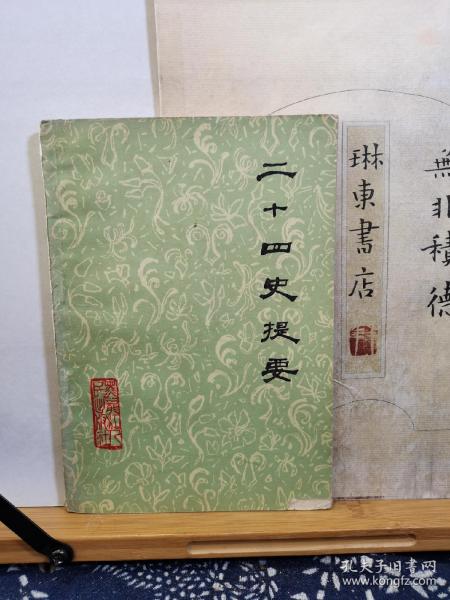 二十四史提要
琳東書店
無非積德
孔夫子旧书网
www.kongfz.com